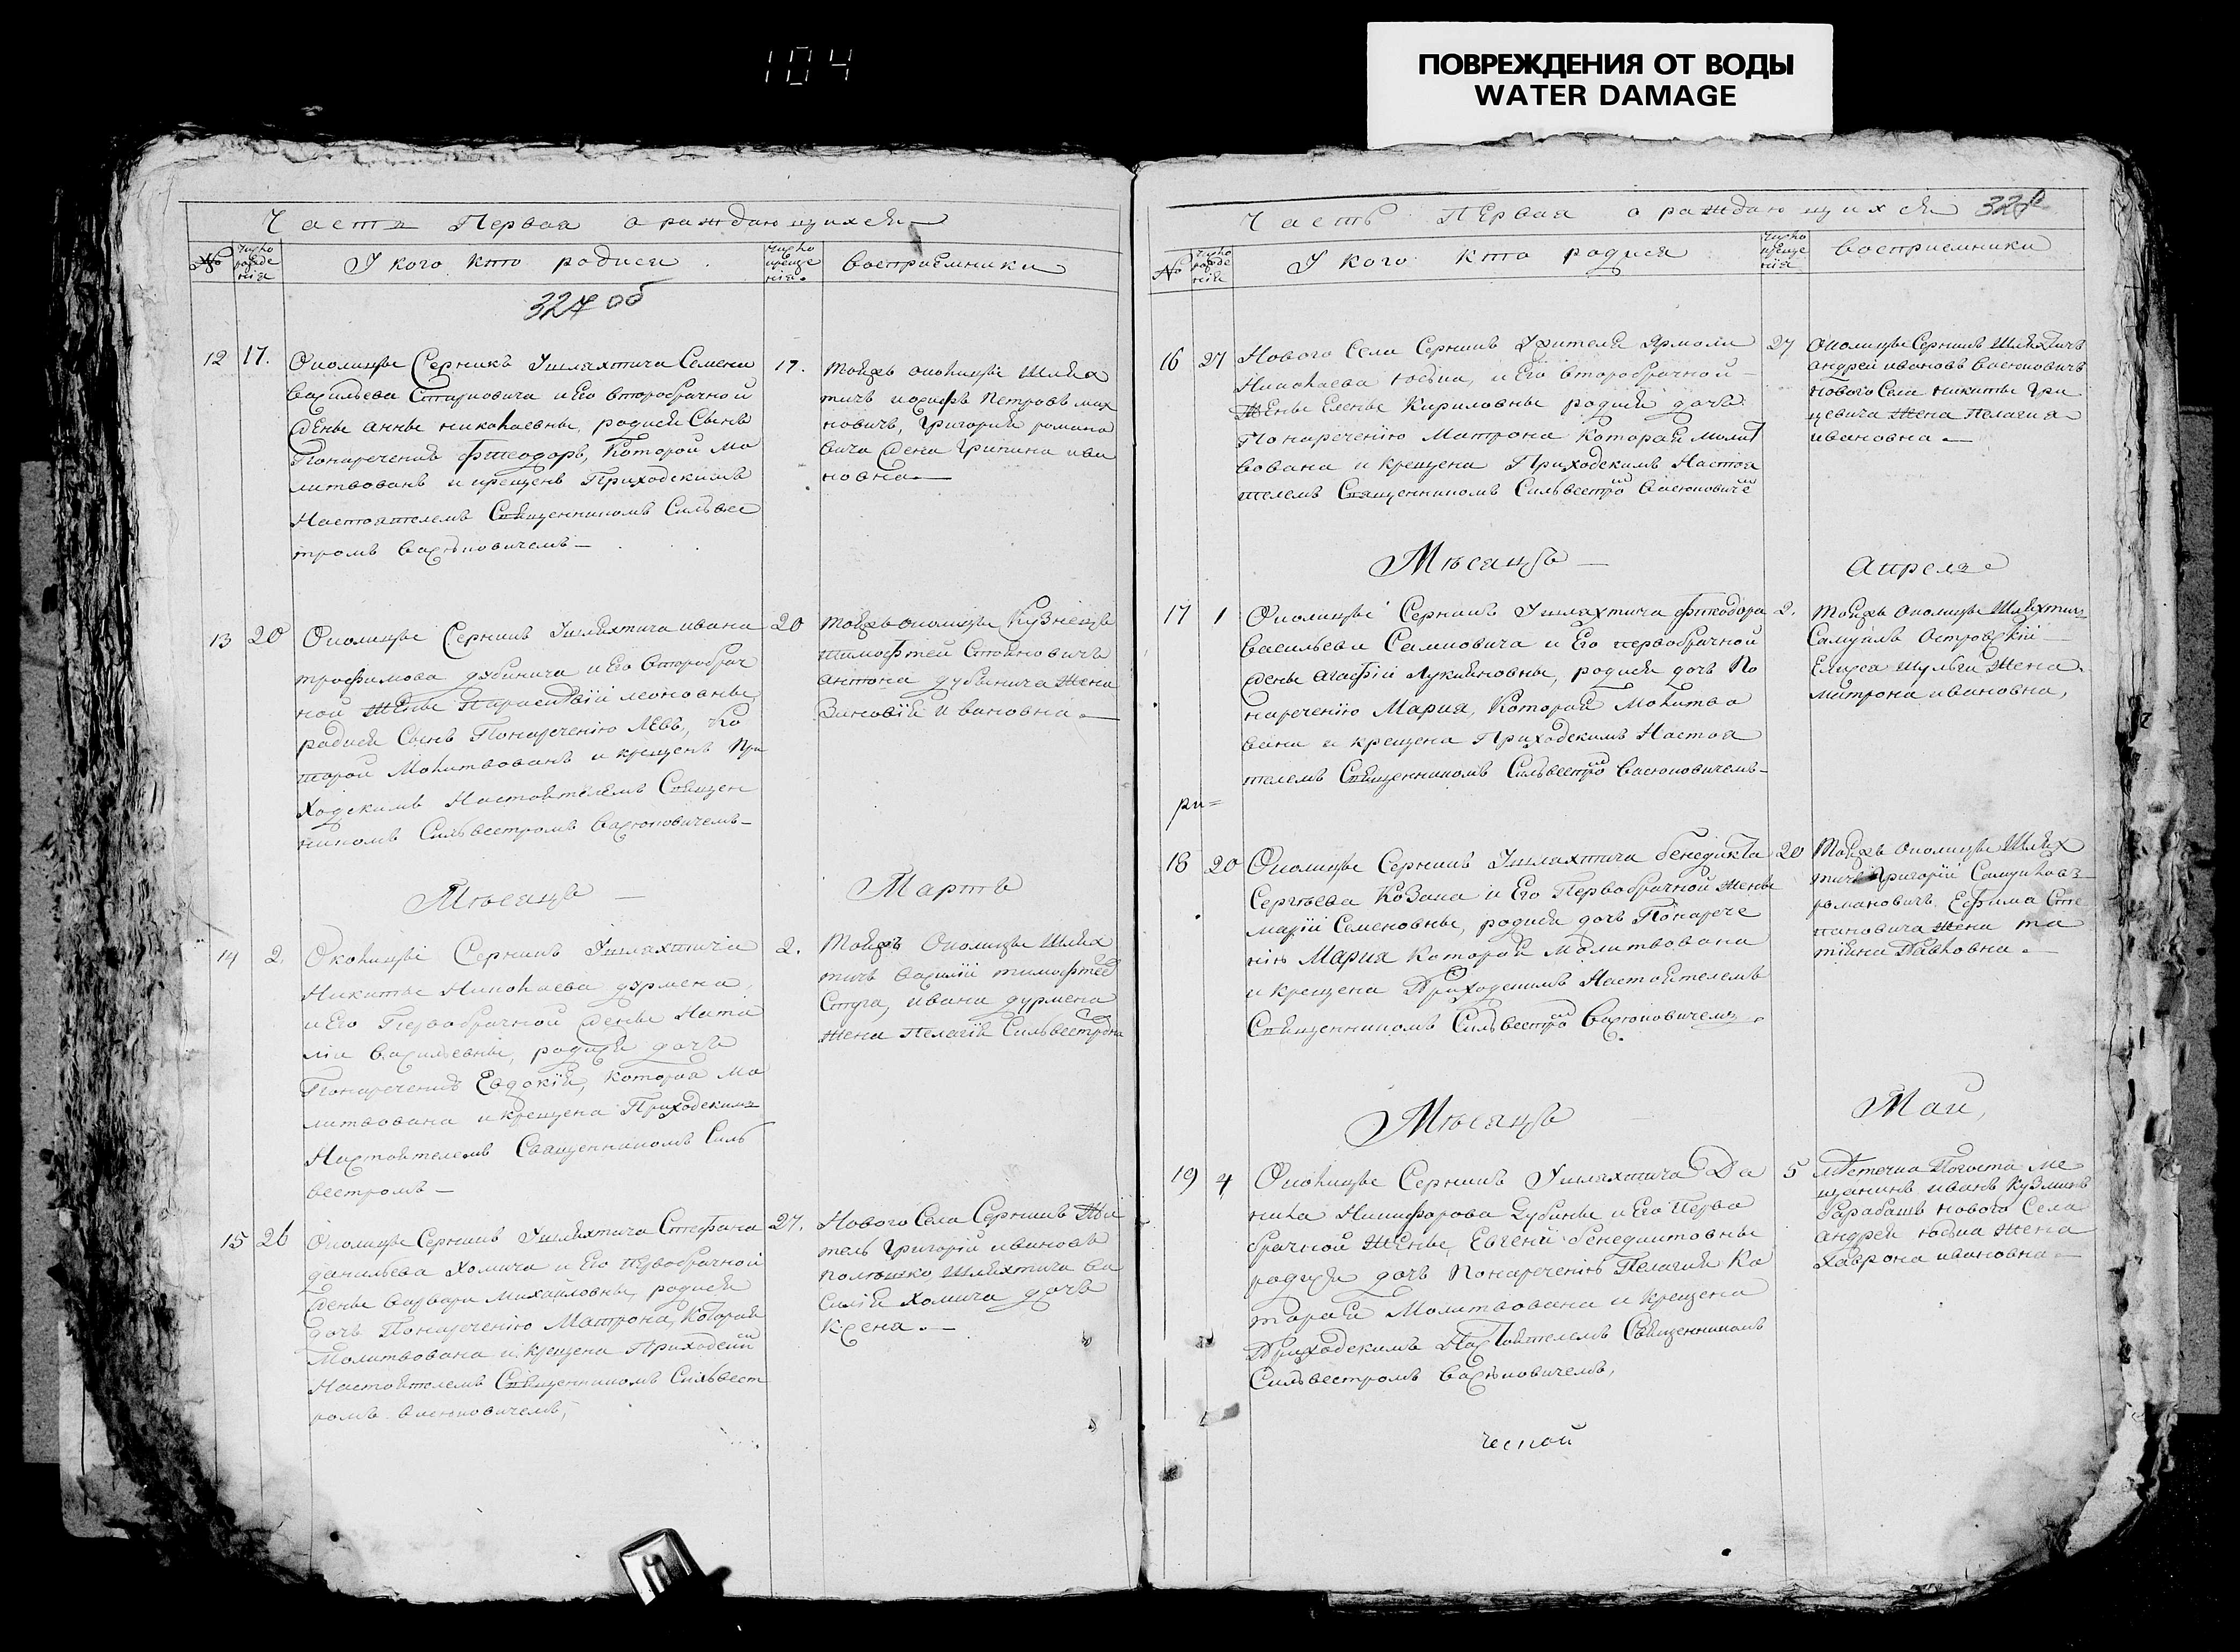 104
ПОВРЕЖДЕНИЯ ОТ ВОДЫ
WATER DAMAGE
Часть Первая о раждающихся
№
Число рожде нія
У кого кто родися
Число креще нія
восприемники
327 об
12 17.
Околицы Серникъ Ушляхтича Семена
Васильева и Его второбрачной
женѣ аннѣ николаевнѣ, родися Сынъ
Понаречению Фтеодоръ, Которой мо
литвованъ и крещенъ Приходскимъ
Настоятелемъ Священникомъ Сильвес
тромъ Васюковичемъ
17.
тойжъ околицы шлях
тичъ иосифъ Петровъ мах
новичъ, Григорія романо
вича жена Грипина ива
новна
13 20
Околицы Серникъ Ушляхтича ивана
трофимова дубинича и Его второбрач
ной женѣ Параскевіи леоновнѣ
родися Сынъ Понаречению Левъ, Ко
торой Молитвованъ и крещенъ При
ходскимъ Настоятелемъ Священ
никомъ Сильвестромъ Васюковичемъ
20
тойжъ околицы Кузнецъ
тимофтей Стахновичъ
антона дубинича жена
Зиновія ивановна
Мѣсяцъ Мартъ
14 2.
Околицы Серникъ Ушляхтича
Никиты Николаева дурмена,
и Его Первобрачной женѣ Ната
ліи Васильевнѣ, родися дочь
Понаречению Евдокія, которая мо
литвована и крещена Приходскимъ
Настоятелемъ Священникомъ Силь
вестромъ
2.
тойжъ Околицы шлях
тичъ Василій тимофтеев
ивана дурмена
жена Пелагія Сильвестровна
15 26
Околицы Серникъ Ушляхтича Стефана
данильева Хомича и Его первобрачной
женѣ Варвары Михайловнѣ, родися
дочь Понаречению Матрона, Которая
Молитвована и крещена Приходским
Настоятелемъ Священникомъ Сильвест
ромъ Васюковичемъ,
27.
Нового Села Серникъ Жи
тель Григорій ивановъ
шляхтича Ва
силія Хомича дочь
Ксеня
Часть Первая о раждающихся
328
№
Число рожде нія
У кого кто родися
Число креще нія
восприемники
16 27
Нового Села Серникъ Ужителя Ярмолы
Николаева Юсыпа, и Его второбрачной
Женѣ Еленѣ Кириловнѣ родися дочь
Понаречению Матрона Которая молит
вована и крещена Приходскимъ Настоя
телемъ Священникомъ Сильвестром Васюковичем
27
околицы Серникъ Шляхтичъ
андрей ивановъ Васюковичъ
Нового Села никиты Гри
цевича Жена Пелагия
ивановна
Мѣсяцъ Апрель
17 1
Околицы Серникъ Ушляхтича Фтеодора
Васильева и Его первобрачной
женѣ агафіи Лукияновнѣ, родися дочь По
наречению Мария, Которая Молитво
вана и крещена Приходскимъ Настоя
телемъ Священникомъ Сильвестром Васюковичемъ
2.
тойжъ околицы Шляхтичъ
Самуилъ Островскій
Елисея шульги Жена
Матрона ивановна,
ри=
18 20
Околицы Серникъ Ушляхтича бенедикта
Сергѣева Козана и Его Первобрачной женѣ
маріи Семеновнѣ, родися дочь Понарече
нію Мария Которая Молитвована
и крещена Приходскимъ Настоятелемъ
Священникомъ Сильвестром Васюковичемъ.
20
Тойжъ околицы Шлях
тичъ Григорій Самуиловъ
романовичъ, Ефима Сте
пановича жена та
тіяна Павловна
Мѣсяцъ Май,
19 4
Околицы Серникъ Ушляхтича Да
нила Никифорова и Его Перво
брачной Женѣ Евгени бенедиктовнѣ
родися дочь Понаречению Пелагия Ко
торая Молитвована и крещена
Приходскимъ Настоятелемъ Священникомъ
Сильвестромъ Васюковичемъ,
5
мѣстечка Погоста ме
щанинъ иванъ Кузминъ
Нового Села
андрея Юсыпа жена
Хаврона ивановна
ческой